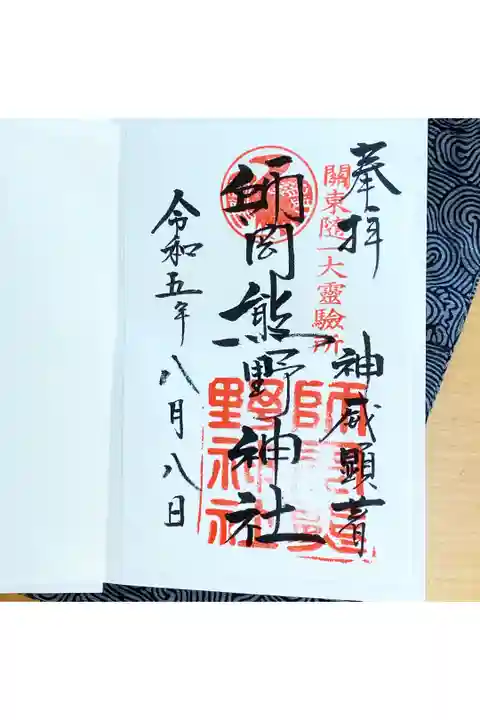 奉拝
神威顕著
關東隨一大靈驗所
師岡熊野神社
師岡熊
野神社
令和五年八月八日